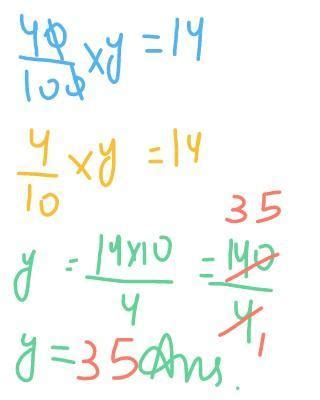 40/100 × y = 14
4/10 × y = 14
y = 14×10/4 = 140/4 35 1
y = 35 Ans.